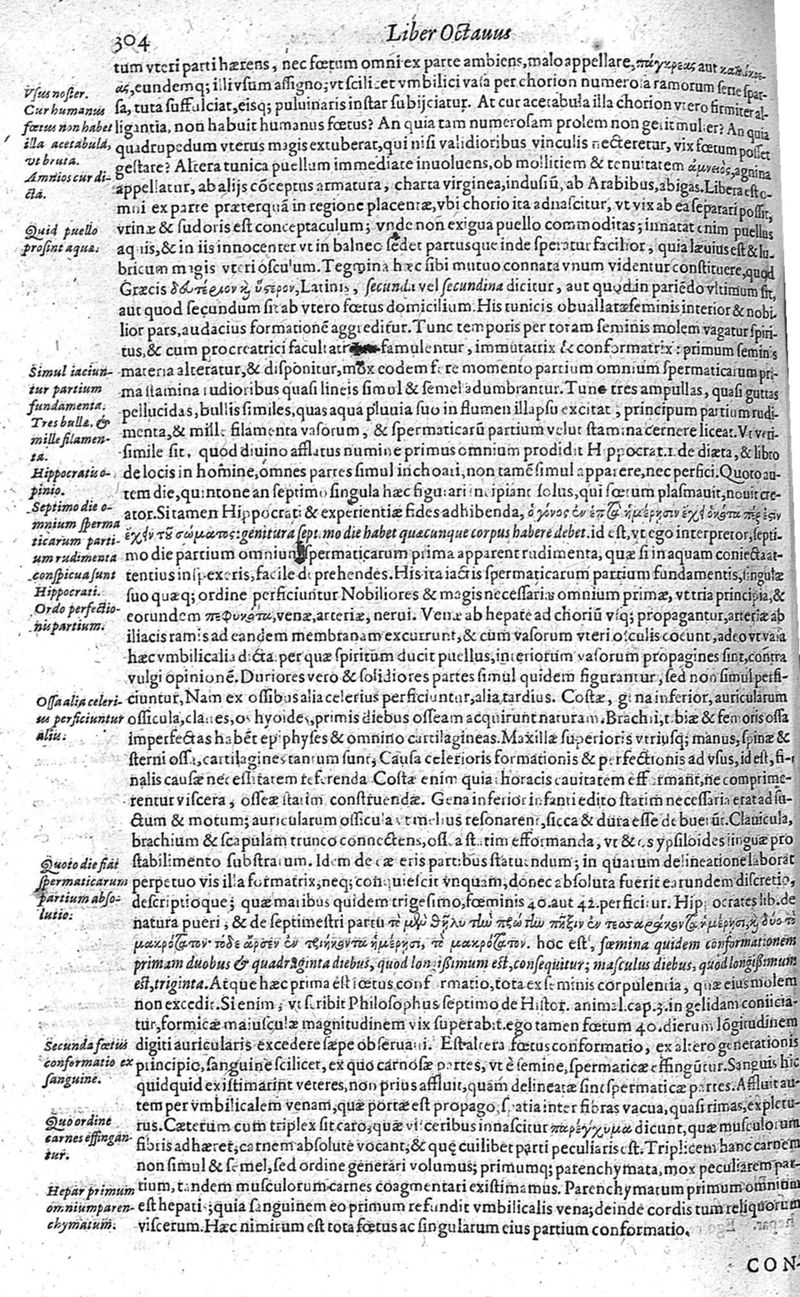 304
Liber Octauus
tum vteri parti hærens, nec fœtum omni ex parte ambiens, malo appellare, πάγκρεας aut
as, eundemq; illi vsum assigno; vt scilicet vmbilici vasa per chorion numerosa ramorum serie spar-
sa, tuta suffulciat, eisq; puluinaris instar subijciatur. At cur acetabula illa chorion vtero firmiter al-
ligantia, non habuit humanus fœtus? An quia tam numerosam prolem non gerit mulier? An quia
quadrupedum vterus magis extuberat, qui nisi validioribus vinculis necteretur, vix fœtum posset
gestare? Altera tunica puellum immediate inuoluens, ob mollitiem & tenuitatem ἀμνειὸς, agnina
appellatur, ab alijs cōceptus armatura, charta virginea, indusiū, ab Arabibus, abigas. Libera est o-
mni ex parte præterquā in regione placentæ, vbi chorio ita adnascitur, vt vix ab ea separari possit,
vrinæ & sudoris est conceptaculum; vnde non exigua puello commoditas; innatat enim puellus
aquis, & in iis innocenter vt in balneo sedet partusque inde speratur facilior, quia læuius est & lu-
bricum magis vteri osculum. Tegmina hæc sibi mutuo connata vnum videntur constituere, quod
Græcis δευτέριον κ̀ ὕστερον, Latinis, secunda vel secundina dicitur, aut quod in pariēdo vltimum sit,
aut quod secundum sit ab vtero fœtus domicilium. His tunicis obuallatæ seminis interior & nobi-
lior pars, audacius formationē aggreditur. Tunc temporis per totam seminis molem vagatur spiri-
tus, & cum procreatrici facultatr famulentur, immutatrix & conformatrix: primum seminis
materia alteratur, & disponitur, mox eodem fere momento partium omnium spermaticarum pri-
ma stamina rudioribus quasi lineis simul & semel adumbrantur. Tunc tres ampullas, quasi guttas
pellucidas, bullis similes, quas aqua pluuia suo in flumen illapsu excitat, principum partium rudi-
menta, & mille filamenta vasorum, & spermaticarū partium velut stamina cernere liceat. Vt veri-
simile sit, quod diuino afflatus numine primus omnium prodidit Hippocrat. 1. de diæta, & libro
de locis in homine, omnes partes simul inchoari, non tamē simul apparere, nec perfici. Quoto au-
tem die, quintone an septimo singula hæc figurari incipiant solus, qui fœtum plasmauit, nouit cre-
ator. Si tamen Hippocrati & experientiæ fides adhibenda, ὁ γόνος ἐν ἑπτὰ ἡμέρησιν ἔχει ὁκόσα περ ἐςὶν
ἔχειν τοῦ σώματος: genitura septimo die habet quæcunque corpus habere debet. id est, vt ego interpretor, septi-
mo die partium omnium spermaticarum prima apparent rudimenta, quæ si in aquam coniecta at-
tentius inspexeris, facile deprehendes. His ita iactis spermaticarum partium fundamentis, singulæ
suo quæq; ordine perficiuntur Nobiliores & magis necessariæ omnium primæ, vt tria principia, &
eorundem πεφυκότα, venæ, arteriæ, nerui. Venæ ab hepate ad choriū vsq; propagantur, arteriæ ab
iliacis ramis ad eandem membranam excurrunt, & cum vasorum vteri osculis coeunt, adeo vt vasa
hæc vmbilicalia dicta. per quæ spiritum ducit puellus, interiorum vasorum propagines sint, contra
vulgi opinionē. Duriores vero & solidiores partes simul quidem figurantur, sed non simul perfi-
ciuntur, Nam ex ossibus alia celerius perficiuntur, alia tardius. Costæ, gena inferior, auricularum
ossicula, claues, os hyoides, primis diebus osseam acquirunt naturam. Brachii, tibiæ & femoris ossa
imperfectas habēt epiphyses & omnino cartilagineas. Maxillæ superioris vtriusq; manus, spinæ &
sterni ossa, cartilagines tantum sunt, Causa celerioris formationis & perfectionis ad vsus, id est, fi-
nalis causæ necessitatem referenda Costæ enim quia thoracis cauitatem efformāt, ne comprime-
rentur viscera, osseæ statim construendæ. Gena inferior infanti edito statim necessaria erat ad su-
ctum & motum; auricularum ossicula vt melius resonarent, sicca & dura esse debuerūt. Clauicula,
brachium & scapulam trunco connectens, ossea statim efformanda, vt & os ypsiloides linguæ pro
stabilimento substratum. Idem de cæteris partibus statuendum; in quarum delineatione laborat
perpetuo vis illa formatrix; neq; conquiescit vnquam, donec absoluta fuerit earundem discretio,
descriptioque; quæ maribus quidem trigesimo, fœminis 40. aut 42. perficitur. Hippocrates lib. de
natura pueri, & de septimestri partu τὸ μὲν θῆλυ τὴν πρώτην πῆξιν ἐν τεοσαράκοντα ἡμέρησι, κ̀ δύο τὸ
μακρότατον· τὸ δὲ ἄρσεν ἐν τριήκοντα ἡμέρησι, τὸ μακρότατον. hoc est, fœmina quidem conformationem
primam duobus & quadraginta diebus, quod longissimum est, consequitur; masculus diebus, quod longissimum
est, triginta. Atque hæc prima est fœtus conformatio, tota ex seminis corpulentia, quæ eius molem
non excedit. Si enim, vt scribit Philosophus septimo de Histor. animal. cap. 3. in gelidam coniicia-
tur, formicæ maiusculæ magnitudinem vix superabit. ego tamen fœtum 40. dierum lōgitudinem
digiti auricularis excedere sæpe obseruaui. Est altera fœtus conformatio, ex altero generationis
principio, sanguine scilicet, ex quo carnosæ partes, vt è semine, spermaticæ effingūtur. Sanguis hic
quidquid existimarint veteres, non prius affluit, quàm delineatæ sint spermaticæ partes. Affluit au-
tem per vmbilicalem venam, quæ portæ est propago; spatia inter fibras vacua, quasi rimas, expletu-
rus. Cæterum cum triplex sit caro; quæ visceribus innascitur παρέγχυμα dicunt, quæ musculorum
fibris adhæret, carnem absolute vocant; & quę cuilibet parti peculiaris est. Triplicem hanc carnem
non simul & semel, sed ordine generari volumus; primumq; parenchymata, mox peculiarem par-
tium, tandem musculorum carnes coagmentari existimamus. Parenchymatum primum omnium
est hepatis; quia sanguinem eo primum refundit vmbilicalis vena; deinde cordis tum reliquorum
viscerum. Hæc nimirum est tota fœtus ac singularum eius partium conformatio.
CON-
Vsus noster.
Cur humanus
fœtus non habet
illa acetabula,
vt bruta.
Amnios cur di-
cta.
Quid puello
prosint aquæ.
Simul iaciun-
tur partium
fundamenta.
Tres bullæ. &
mille filamen-
ta.
Hippocratis o-
pinio.
Septimo die o-
mnium sperma
ticarum parti-
um rudimenta
conspicua sunt
Hippocrati.
Ordo perfectio-
nis partium.
Ossa alia celeri-
us perficiuntur
aliis.
Quoto die fiat
spermaticarum
partium abso-
lutio.
Secunda fœtus
conformatio ex
sanguine.
Quo ordine
carnes effingan-
tur.
Hepar primum
omnium paren-
chymatum.